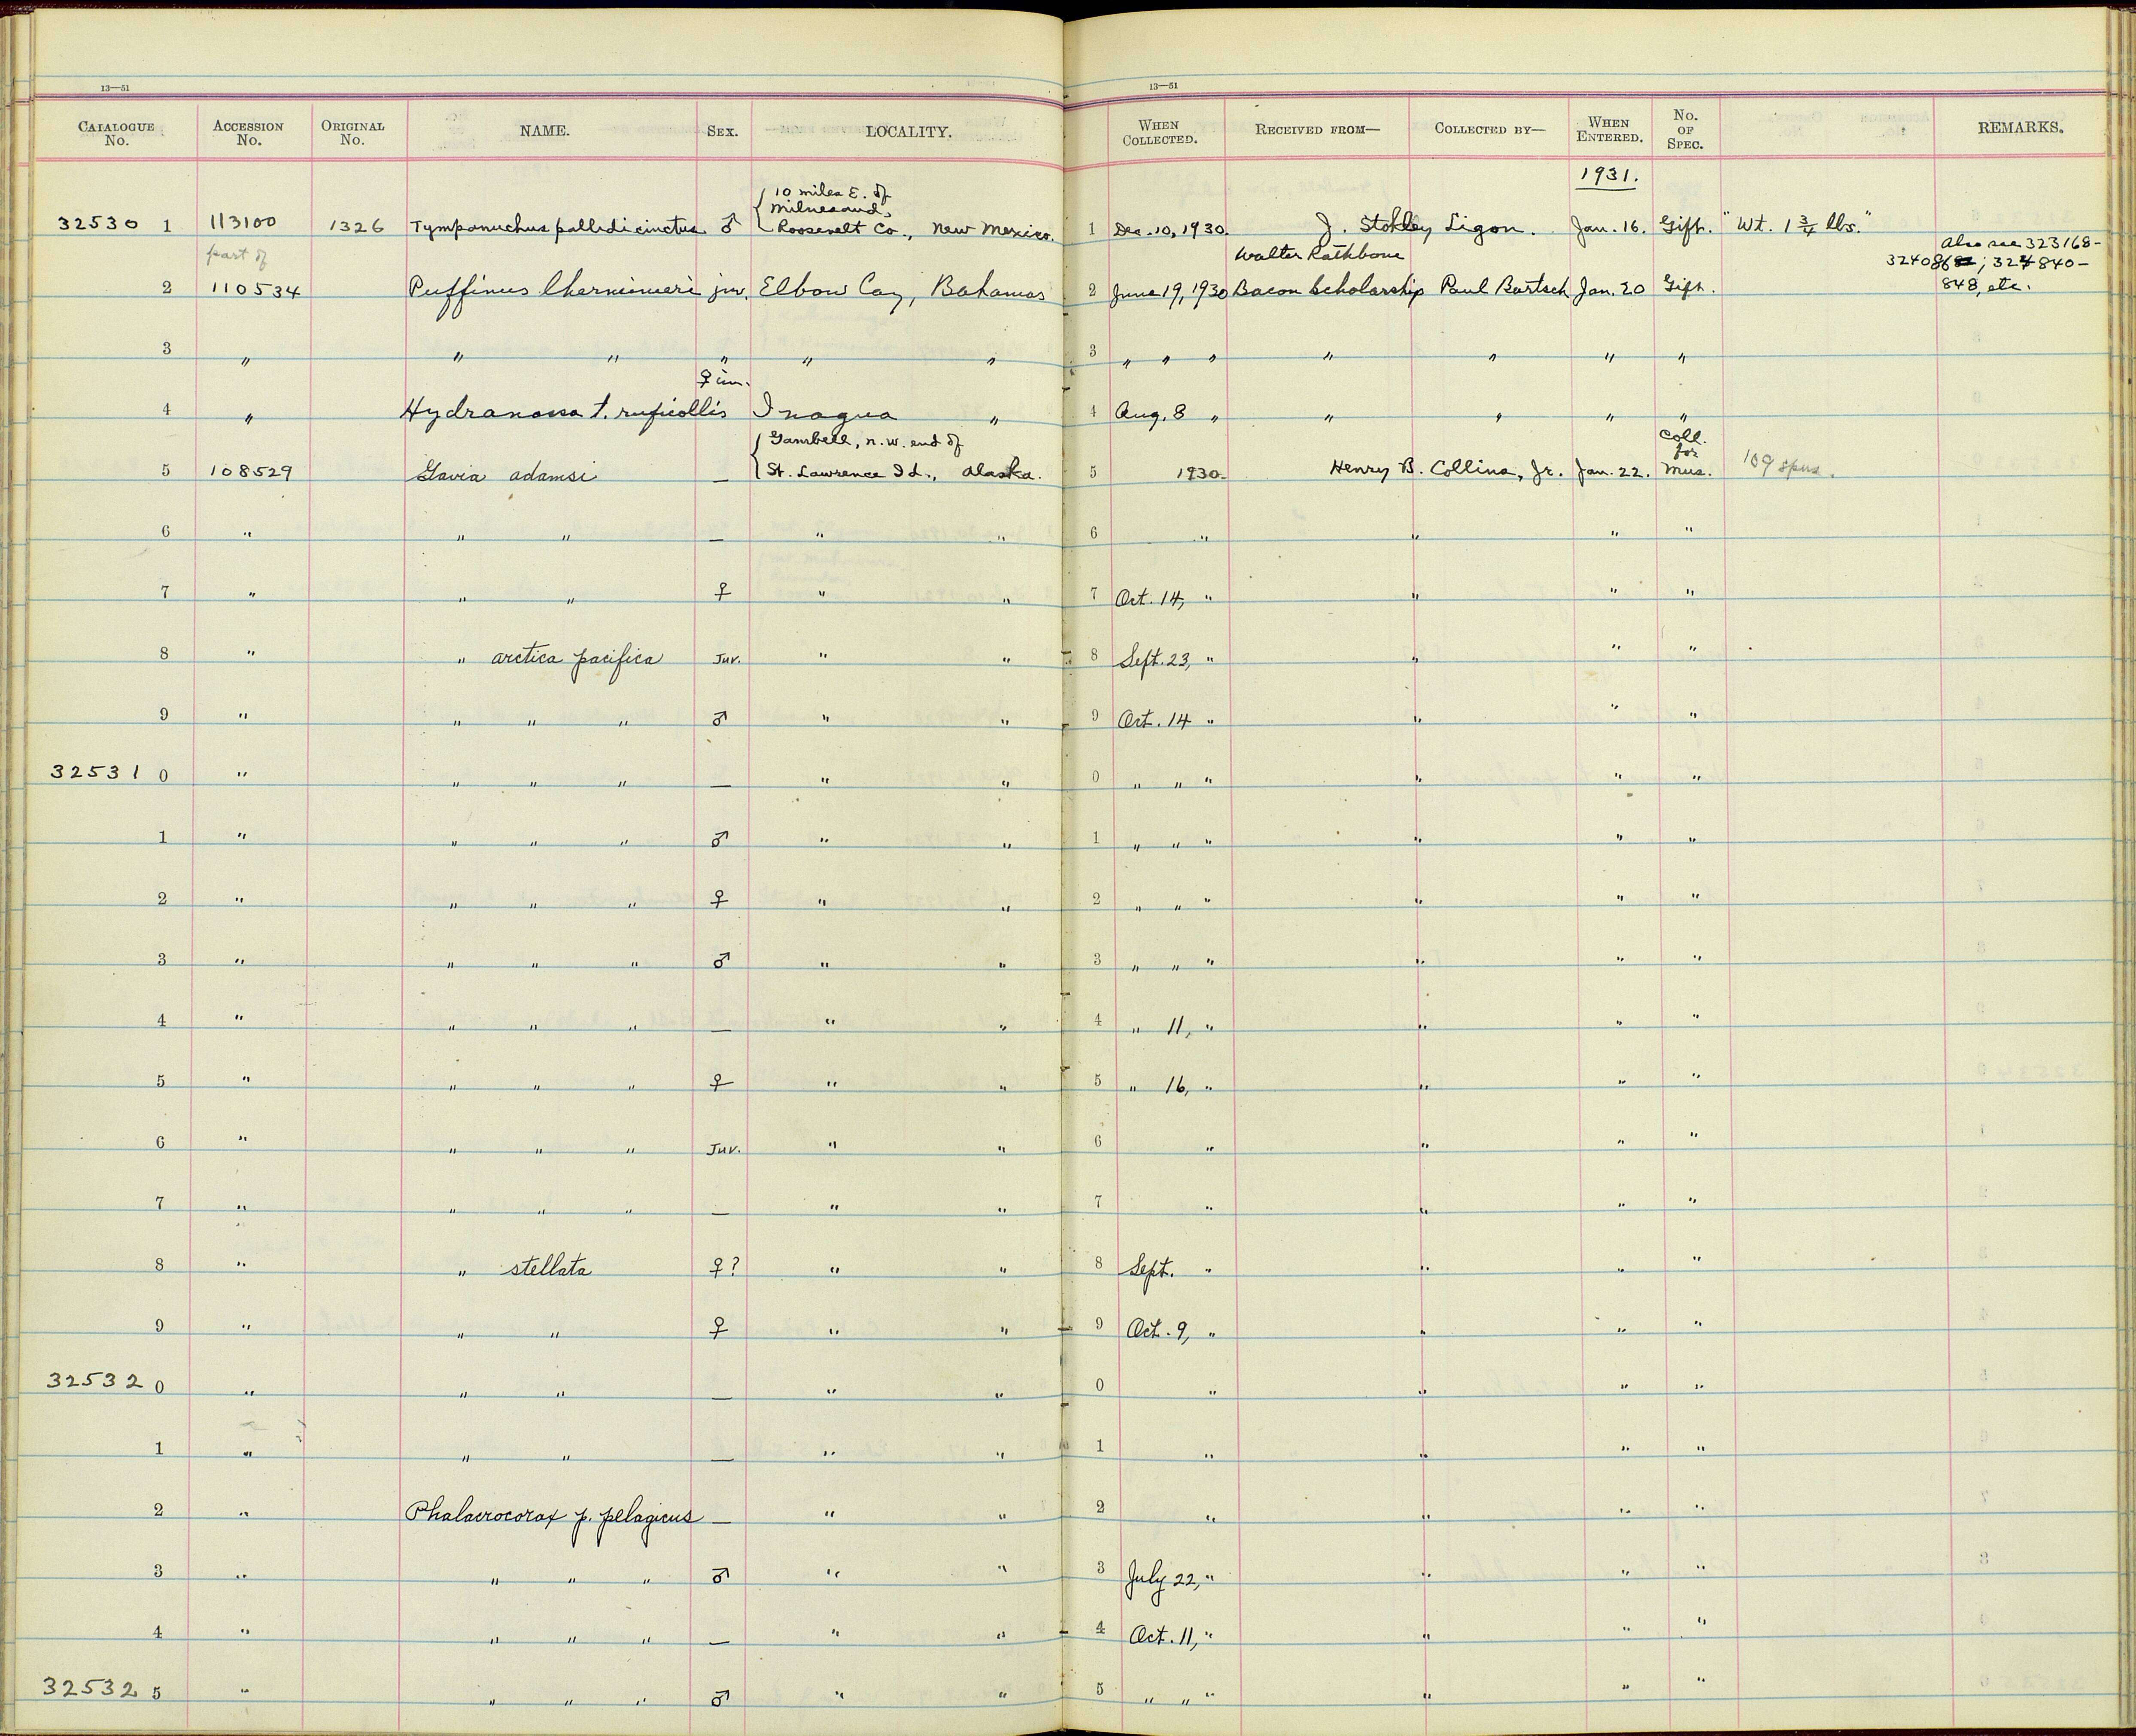 13—51 13—51
CATALOGUE No. ACCESSION No. ORIGINAL No. NAME. SEX. LOCALITY. WHEN COLLECTED. RECEIVED FROM— COLLECTED BY— WHEN ENTERED. No. OF SPEC. REMARKS.
1931.
{ 10 miles E. of
Milnesand,
32530 1 113100 1326 Tympanuchus pallidicinctus ♂ Roosevelt Co., New Mexico. 1 Dec. 10, 1930. J. Stokley Ligon. Jan. 16. Gift. "Wt. 1 3/4 lbs."
part of Walter Rathbone Also see 323168-
324086; 324840-
2 110534 Puffinus lherminieri juv. Elbow Cay, Bahamas 2 June 19, 1930 Bacon Scholarship Paul Bartsch Jan. 20 Gift. 848, etc.
3 " " " " " " 3 " " " " " " "
♀ im.
4 " Hydranassa t. ruficollis Inagua " 4 Aug. 8 " " " " "
{ Gambell, n.w. end of Coll. for
5 108529 Gavia adamsi — St. Lawrence Id., Alaska. 5 1930. Henry B. Collins, Jr. Jan. 22. Mus. 109 spms.
6 " " " — " " 6 " " " "
7 " " " ♀ " " 7 Oct. 14, " " " "
8 " " arctica pacifica Juv. " " 8 Sept. 23, " " " "
9 " " " " ♂ " " 9 Oct. 14 " " " "
32531 0 " " " " — " " 0 " " " " " "
1 " " " " ♂ " " 1 " " " " " "
2 " " " " ♀ " " 2 " " " " " "
3 " " " " ♂ " " 3 " " " " " "
4 " " " " — " " 4 " 11, " " " "
5 " " " " ♀ " " 5 " 16, " " " "
6 " " " " Juv. " " 6 " " " "
7 " " " " — " " 7 " " " "
8 " " stellata ♀? " " 8 Sept. " " " "
9 " " " ♀ " " 9 Oct. 9, " " " "
32532 0 " " " — " " 0 " " " "
1 " " " — " " 1 " " " "
2 " Phalacrocorax p. pelagicus — " " 2 " " " "
3 " " " " ♂ " " 3 July 22, " " " "
4 " " " " — " " 4 Oct. 11, " " " "
32532 5 " " " " ♂ " " 5 " " " " " "